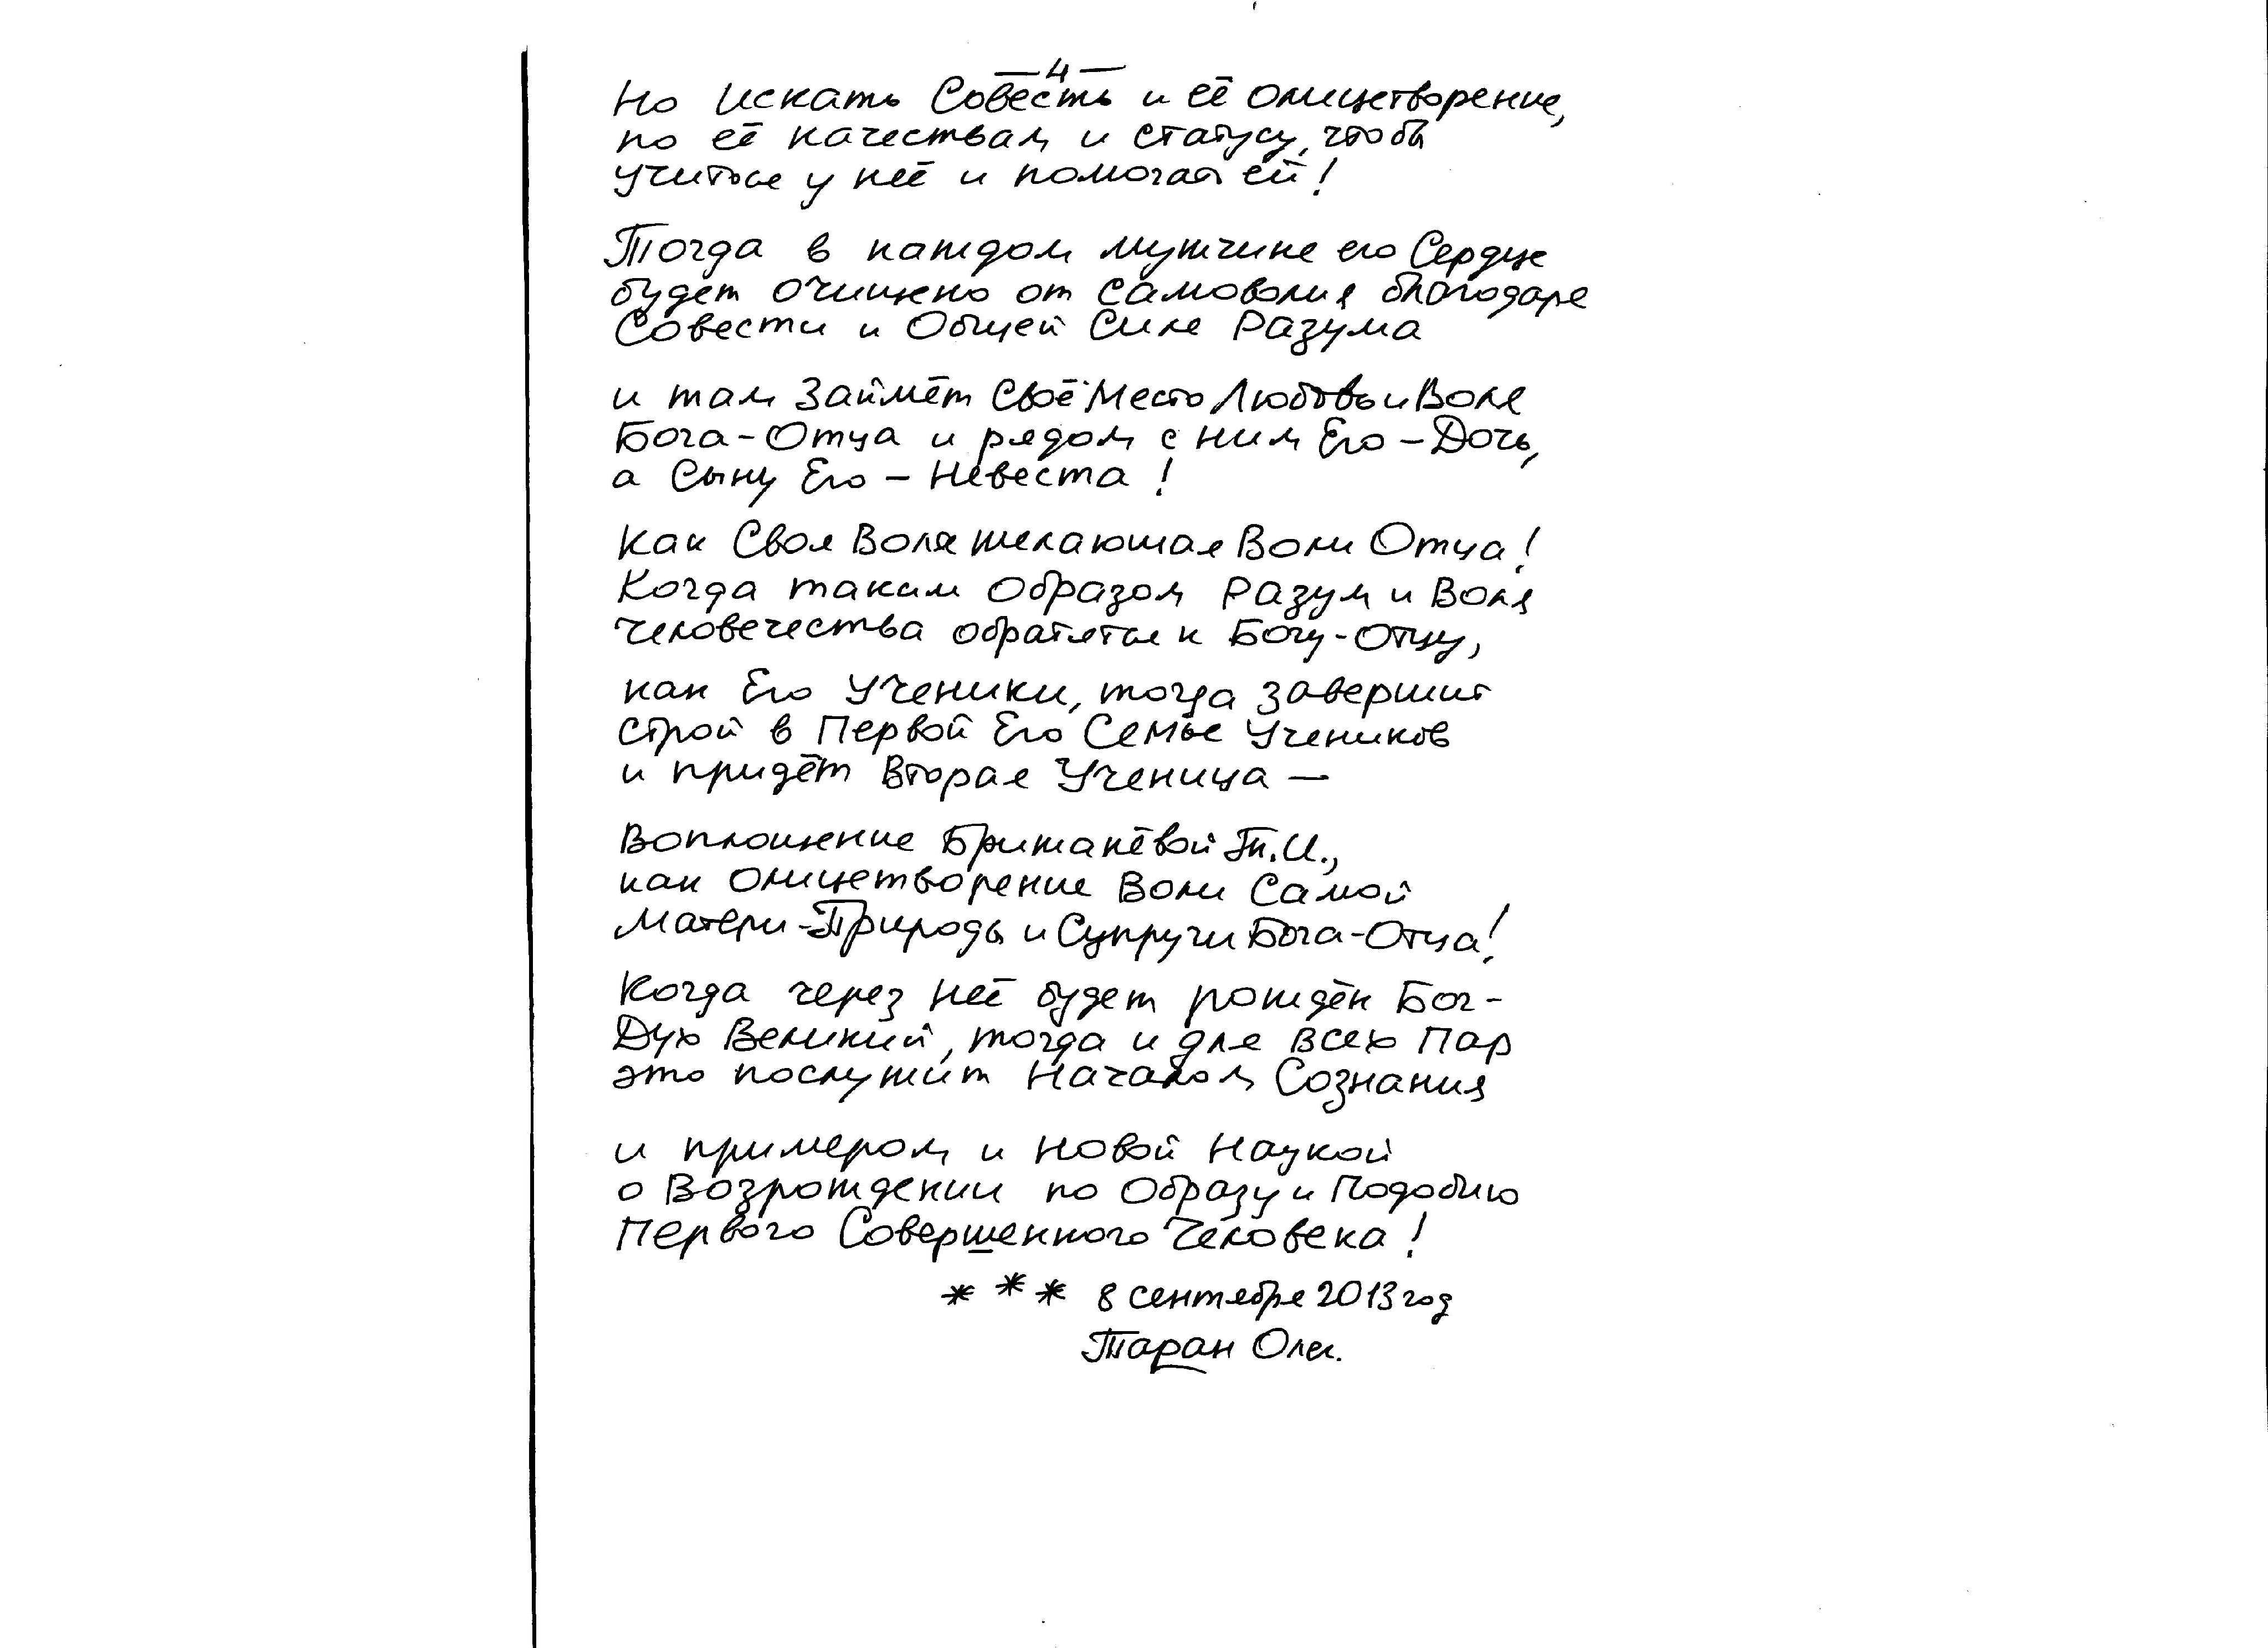 — 4 —
Но Искать Совесть и её олицетворение,
по её качествам и статусу, чтобы
учиться у неё и помогать ей!
Тогда в каждом мужчине его Сердце
будет очищено от самоволия благодаря
Совести и Общей Силе Разума
и там Займёт Своё Место Любовь и Воля
Бога-Отца и рядом с ним Его - Дочь,
а Сыну Его - Невеста!
Как Своя Воля желающая Воли Отца!
Когда таким Образом Разум и Воля
человечества обратятся к Богу-Отцу,
как Его Ученики, тогда завершит
строй в Первой Его Семье Учеников
и придёт Вторая Ученица —
Воплощение т.И.,
как олицетворение Воли Самой
Матери-Природы и Супруги Бога-Отца!
Когда через неё будет рождён Бог-
Дух Великий, тогда и для всех Пар
это послужит Началом Сознания
и примером и Новой Наукой
о Возрождении по Образу и Подобию
Первого Совершенного Человека!
* * * 8 сентября 2013 год
Таран Олег.